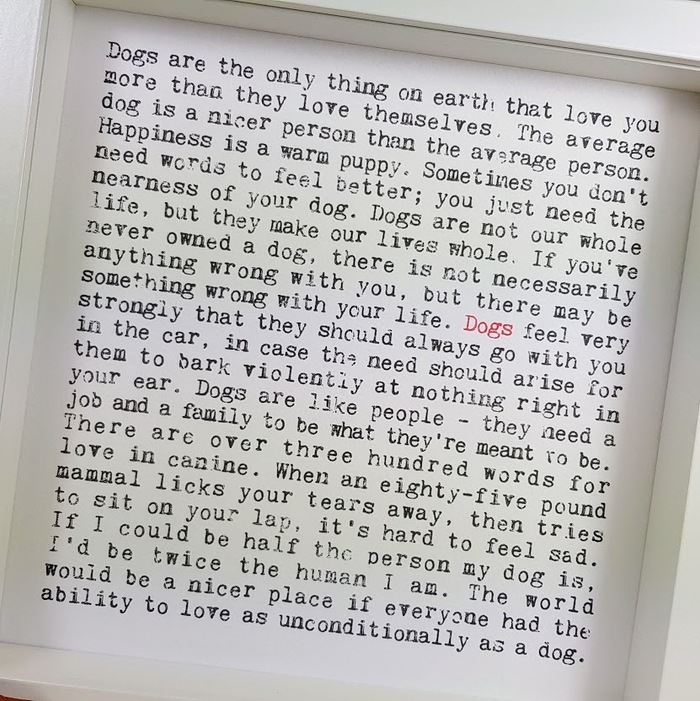 Dogs are the only thing on earth that love you
more than they love themselves. The average
dog is a nicer person than the average person.
Happiness is a warm puppy. Sometimes you don't
need words to feel better; you just need the
nearness of your dog. Dogs are not our whole
life, but they make our lives whole. If you've
never owned a dog, there is not necessarily
anything wrong with you, but there may be
something wrong with your life. Dogs feel very
strongly that they should always go with you
in the car, in case the need should arise for
them to bark violently at nothing right in
your ear. Dogs are like people - they need a
job and a family to be what they're meant to be.
There are over three hundred words for
love in canine. When an eighty-five pound
mammal licks your tears away, then tries
to sit on your lap, it's hard to feel sad.
If I could be half the person my dog is,
I'd be twice the human I am. The world
would be a nicer place if everyone had the
ability to love as unconditionally as a dog.